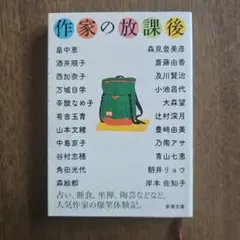 作家の放課後
畠中恵
酒井順子
西加奈子
万城目学
辛酸なめ子
有吉玉青
山本文緒
中島京子
谷村志穂
角田光代
森絵都
森見登美彦
斎藤由香
及川賢治
小池昌代
大森望
辻村深月
豊崎由美
乃南アサ
青山七恵
朝井リョウ
岸本佐知子
占い、断食、坐禅、陶芸などなど。
人気作家の爆笑体験記。
新潮文庫